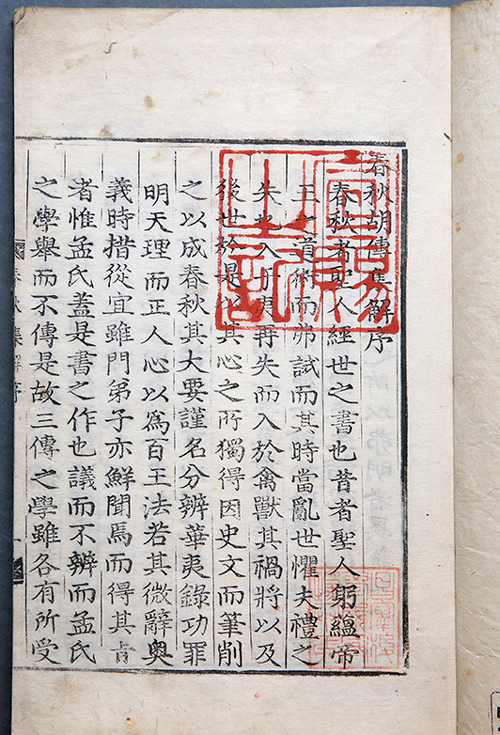 春秋胡傳集解序
春秋者聖人經世之書也昔者聖人躬蘊帝
王之道術而弗試而其時當亂世懼夫禮之
失也入于夷再失而入於禽獸其禍將以及
後世於是以其心之所獨得因史文而筆削
之以成春秋其大要謹名分辨華夷錄功罪
明天理而正人心以爲百王法若其微辭奧
義時措從宜雖門弟子亦鮮聞焉而得其旨
者惟孟氏蓋是書之作也議而不辨而孟氏
之學舉而不傳是故三傳之學雖各有所受
春秋集解序
宣賜之記